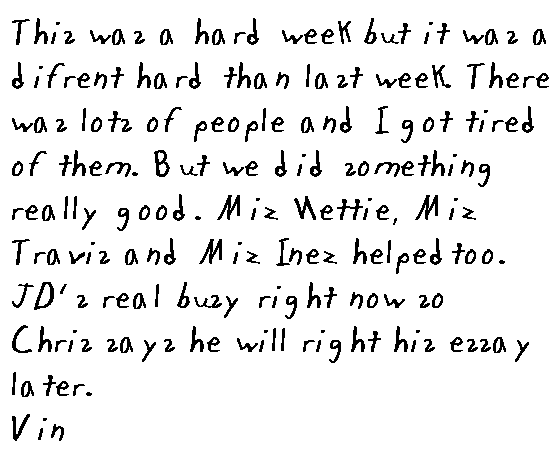 This was a hard week but it was a
difrent hard than last week. There
was lots of people and I got tired
of them. But we did something
really good. Miz Nettie, Miz
Travis and Miz Inez helped too.
JD's real busy right now so
Chris says he will right his essay
later.
Vin